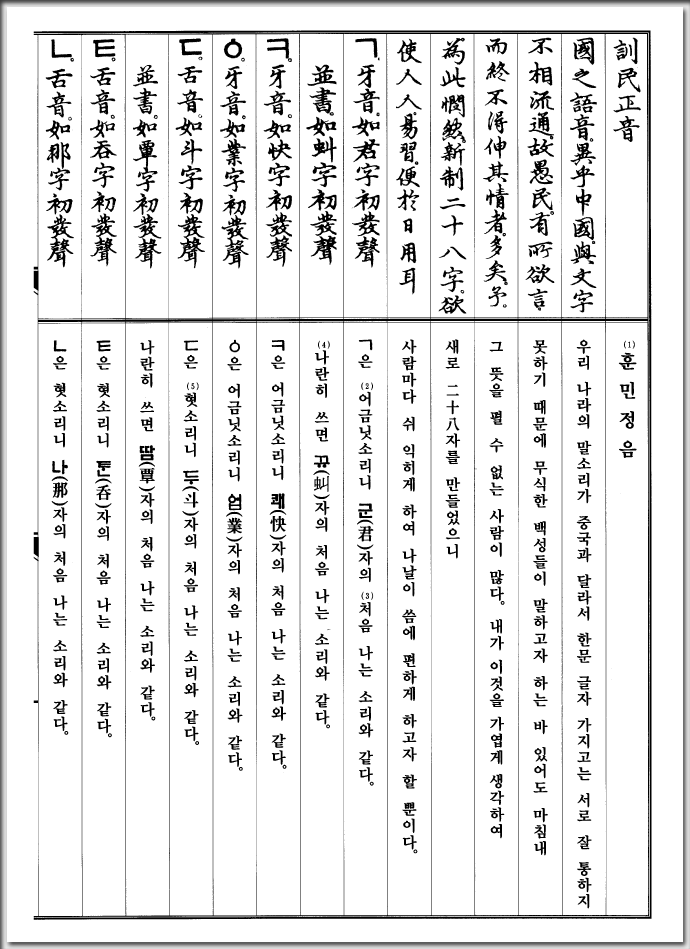 訓民正音
國之語音。異乎中國。與文字
不相流通。故愚民。有所欲言
而終不得伸其情者。多矣。予。
為此憫然。新制二十八字。欲
使人人易習。便於日用耳
ㄱ。牙音。如君字初發聲
並書。如虯字初發聲
ㅋ。牙音。如快字初發聲
ㆁ。牙音。如業字初發聲
ㄷ。舌音。如斗字初發聲
並書。如覃字初發聲
ㅌ。舌音。如呑字初發聲
ㄴ。舌音。如那字初發聲
(1)훈 민 정 음
우리 나라의 말소리가 중국과 달라서 한문 글자 가지고는 서로 잘 통하지
못하기 때문에 무식한 백성들이 말하고자 하는 바 있어도 마침내
그 뜻을 펼 수 없는 사람이 많다。 내가 이것을 가엽게 생각하여
새로 二十八자를 만들었으니
사람마다 쉬 익히게 하여 나날이 씀에 편하게 하고자 할 뿐이다。
ㄱ은 (2)어금닛소리니 군(君)자의 (3)처음 나는 소리와 같다。
(4)나란히 쓰면 뀨(虯)자의 처음 나는 소리와 같다。
ㅋ은 어금닛소리니 쾌(快)자의 처음 나는 소리와 같다。
ㆁ은 어금닛소리니 업(業)자의 처음 나는 소리와 같다。
ㄷ은 (5)혓소리니 두(斗)자의 처음 나는 소리와 같다。
나란히 쓰면 땀(覃)자의 처음 나는 소리와 같다。
ㅌ은 혓소리니 톤(呑)자의 처음 나는 소리와 같다。
ㄴ은 혓소리니 나(那)자의 처음 나는 소리와 같다。